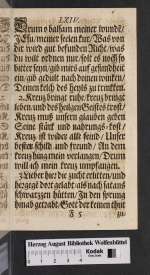 LXIV.
Drum o balsam meiner wunde/
Eyl meiner seelen zu/ Was von
dir wird gut befunden Nicht/ was
du wilt ordnen nur/ solt es noch so
bitter seyn/ gib mirs auf gesundheit
ein/ gib gedult nach deinen wincken/
Deinen kelch des heyls zu trincken.
2. Kreuz bringt ruhe/ kreuz bringt
leben/ und des heilgen Geistes trost/
Kreuz muß unserm glauben geben
Seine stärck und nahrungs-kost/
Kreuz ist wider alle feind/ Unser
bester schild und freund/ An dem
kreuz hing mein verlangen/ Drum
will ich mein kreuz umpfangen.
3. Lieber hier die zucht erlitten/ und
dort gelabt/ als nach satans
schwartzen hütten/ In den sprung
hinab getrabt/ Gott der kennet
F 5
Herzog August Bibliothek Wolfenbüttel